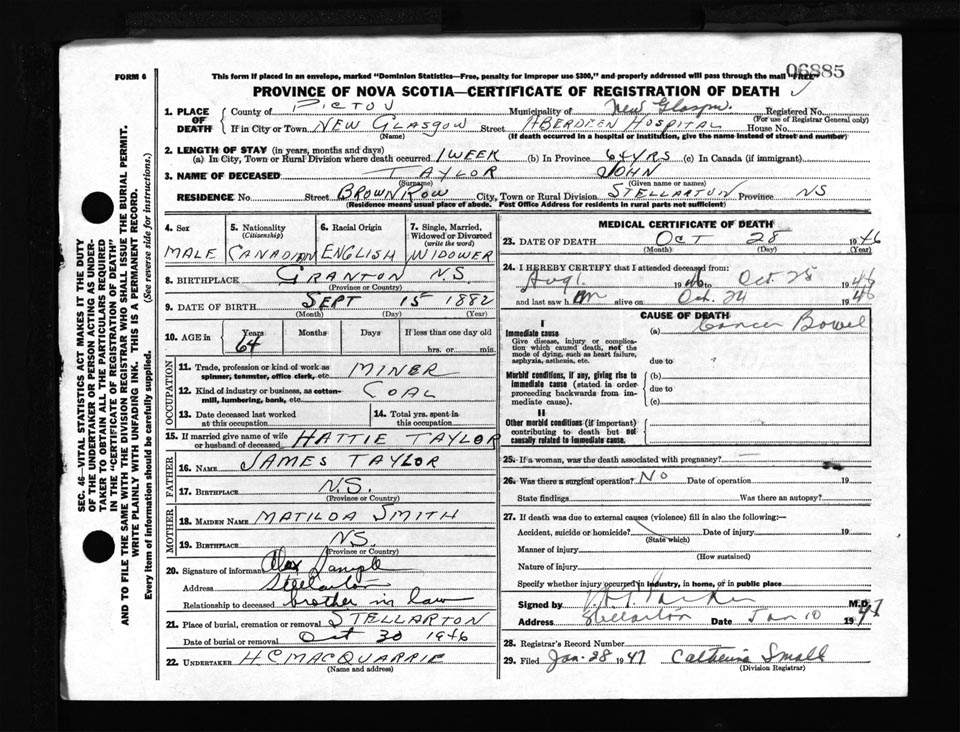 06885
FORM 6
This form if placed in an envelope, marked "Dominion Statistics—Free, penalty for improper use $300," and properly addressed will pass through the mail "FREE"
PROVINCE OF NOVA SCOTIA—CERTIFICATE OF REGISTRATION OF DEATH
SEC. 46—VITAL STATISTICS ACT MAKES IT THE DUTY
OF THE UNDERTAKER OR PERSON ACTING AS UNDER-
TAKER TO OBTAIN ALL THE PARTICULARS REQUIRED
IN THE "CERTIFICATE OF REGISTRATION OF DEATH"
AND TO FILE THE SAME WITH THE DIVISION REGISTRAR WHO SHALL ISSUE THE BURIAL PERMIT.
WRITE PLAINLY WITH UNFADING INK. THIS IS A PERMANENT RECORD.
Every item of information should be carefully supplied. (See reverse side for instructions.)
1. PLACE OF DEATH
County of PICTOU Municipality of New Glasgow. Registered No.
(For use of Registrar General only)
If in City or Town NEW GLASGOW Street ABERDEEN HOSPITAL House No.
(Name) (If death occurred in a hospital or institution, give the name instead of street and number)
2. LENGTH OF STAY (in years, months and days)
(a) In City, Town or Rural Division where death occurred 1 WEEK (b) In Province 64 YRS (c) In Canada (if immigrant)
3. NAME OF DECEASED TAYLOR JOHN
(Surname) (Given name or names)
RESIDENCE No. Street BROWN ROW City, Town or Rural Division STELLARTON Province NS
(Residence means usual place of abode. Post Office Address for residents in rural parts not sufficient)
4. Sex 5. Nationality (Citizenship) 6. Racial Origin 7. Single, Married, Widowed or Divorced (write the word)
MALE CANADIAN ENGLISH WIDOWER
8. BIRTHPLACE GRANTON N.S.
(Province or Country)
9. DATE OF BIRTH SEPT 15 1882
(Month) (Day) (Year)
10. AGE in Years Months Days If less than one day old
64 hrs. or min.
OCCUPATION
11. Trade, profession or kind of work as spinner, teamster, office clerk, etc. MINER
12. Kind of industry or business, as cotton-mill, lumbering, bank, etc. COAL
13. Date deceased last worked at this occupation
14. Total yrs. spent in this occupation
15. If married give name of wife or husband of deceased HATTIE TAYLOR
FATHER
16. NAME JAMES TAYLOR
17. BIRTHPLACE N.S.
(Province or Country)
MOTHER
18. MAIDEN NAME MATILDA SMITH
19. BIRTHPLACE N.S.
(Province or Country)
20. Signature of informant Alex
Address Stellarton
Relationship to deceased brother in law
21. Place of burial, cremation or removal STELLARTON
Date of burial or removal Oct 30 1946
22. UNDERTAKER H C MACQUARRIE
(Name and address)
MEDICAL CERTIFICATE OF DEATH
23. DATE OF DEATH OCT 28 1946
(Month) (Day) (Year)
24. I HEREBY CERTIFY that I attended deceased from:
Aug 1. 1946 to Oct. 28 1946
and last saw him alive on Oct. 24 1946
CAUSE OF DEATH
I
Immediate cause (a) Cancer Bowel
Give disease, injury or complication which caused death, not the mode of dying, such as heart failure, asphyxia, asthenia, etc.
due to
Morbid conditions, if any, giving rise to immediate cause (stated in order proceeding backwards from immediate cause).
(b)
due to
(c)
II
Other morbid conditions (if important) contributing to death but not causally related to immediate cause.
25. If a woman, was the death associated with pregnancy? —
26. Was there a surgical operation? No Date of operation 19
State findings Was there an autopsy?
27. If death was due to external causes (violence) fill in also the following:—
Accident, suicide or homicide? Date of injury 19
(State which)
Manner of injury
(How sustained)
Nature of injury
Specify whether injury occurred in industry, in home, or in public place
Signed by Parker M.D.
Address Stellarton Date Jan 10 1947
28. Registrar's Record Number
29. Filed Jan. 28 1947 Catherine Small
(Division Registrar)